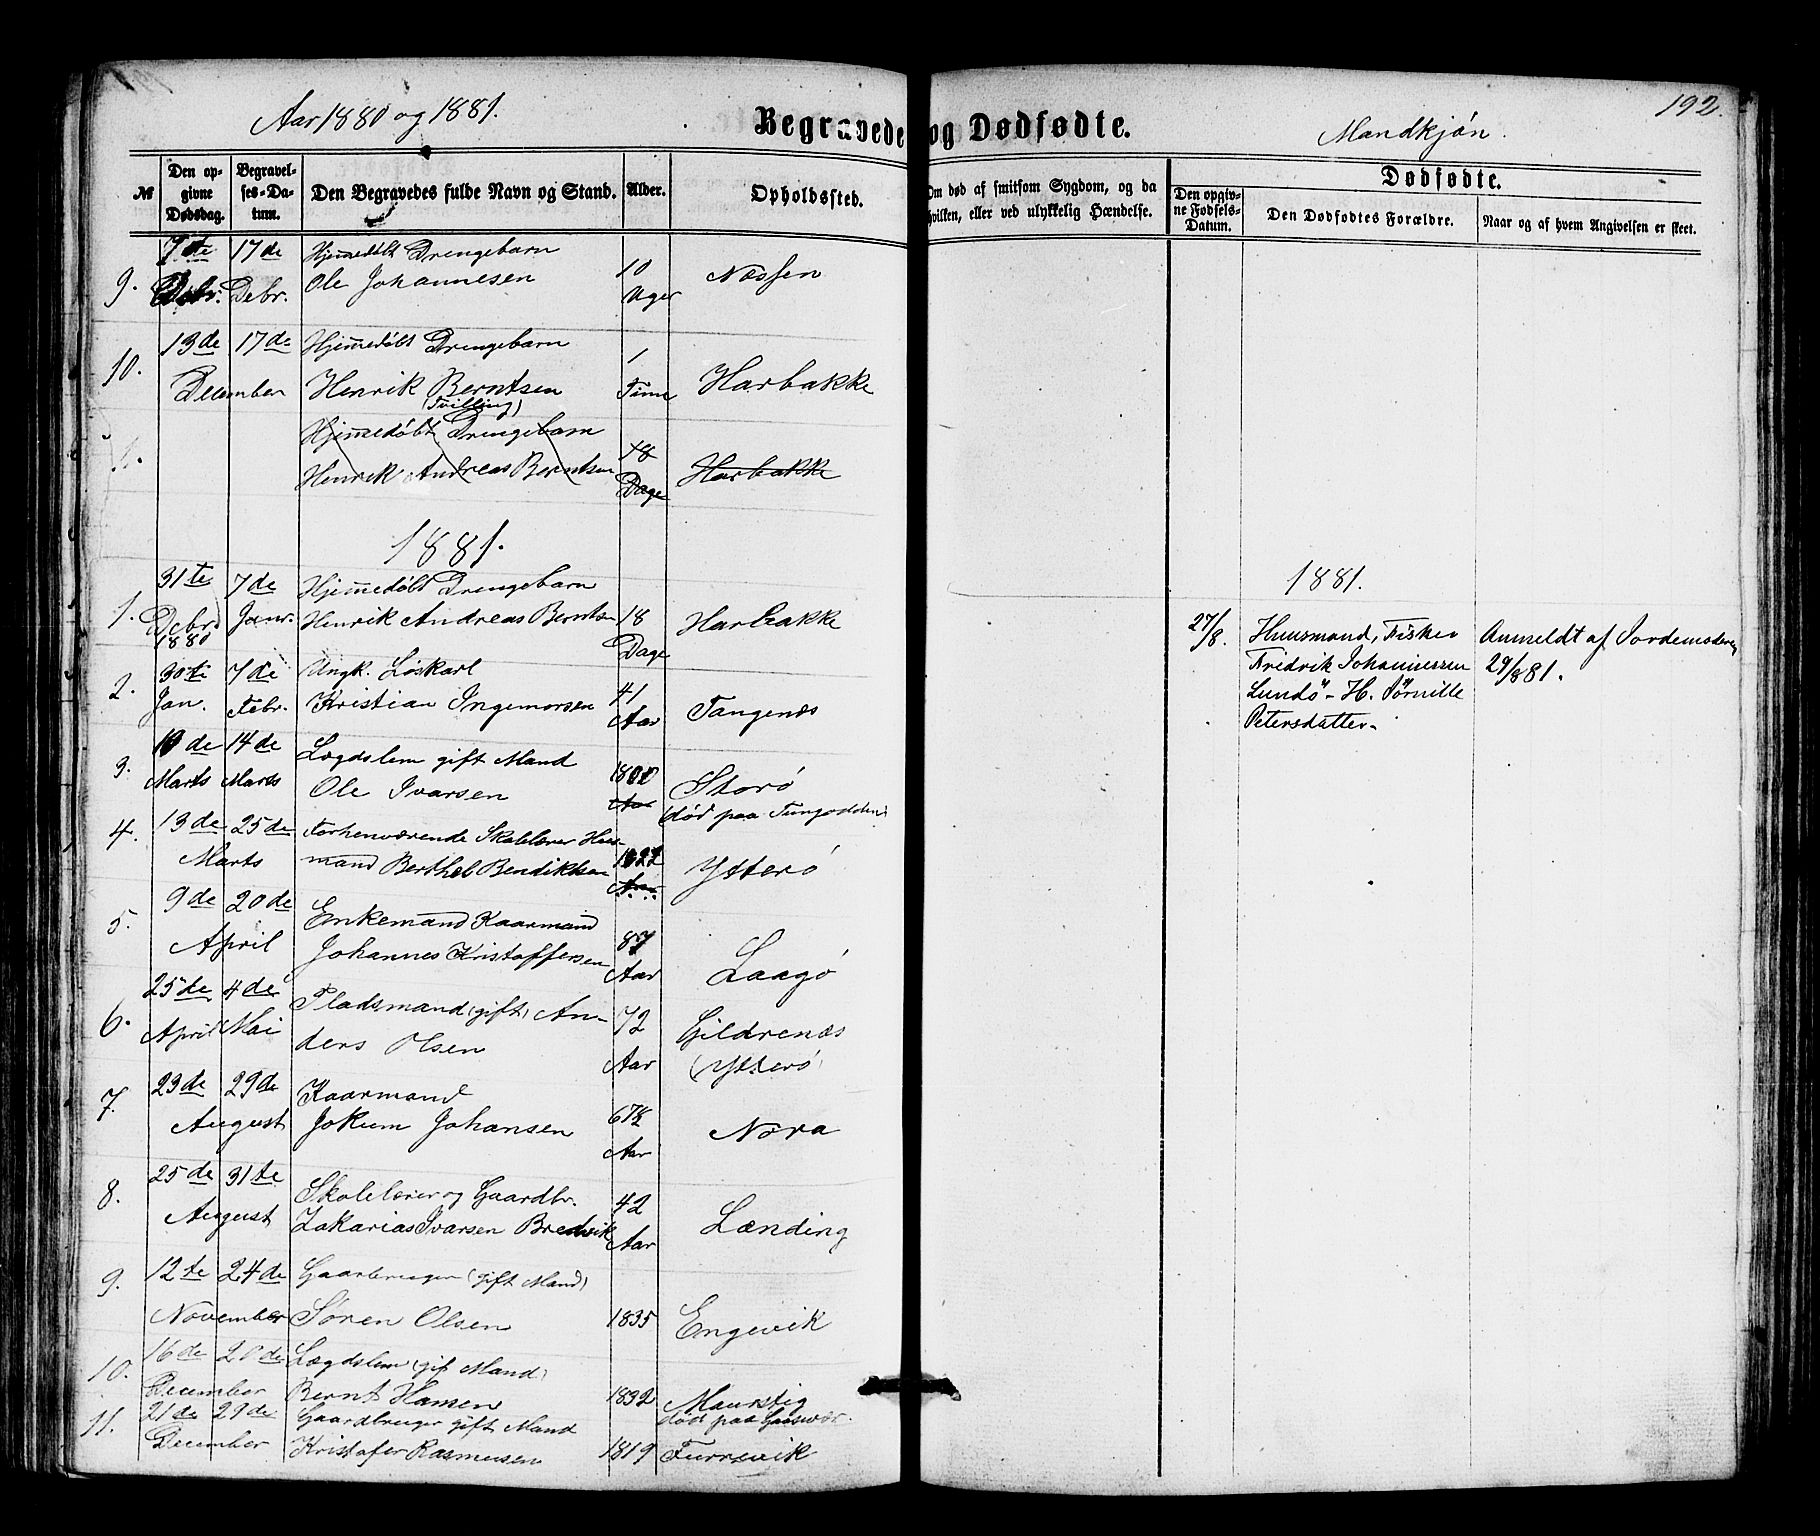 Aar 1880 og 1881.
Begravede og Dødfødte.
Mandkjøn.
192.
№
Den opgivne Dødsdag.
Begravelses-Datum.
Den Begravedes fulde Navn og Stand.
Alder.
Opholdssted.
Om død af smitsom Sygdom, og da hvilken, eller ved ulykkelig Hændelse.
Dødfødte.
Den opgivne Fødsels-Datum.
Den Dødfødtes Forældre.
Naar og af hvem Angivelsen er skeet.
9. 7de Debr. 17de Debr. Hjemmedøbt Drengebarn
Ole Johannesen 10 Uger Næssen
10. 13de 17de December Hjemmedøbt Drengebarn
Henrik Berntsen 1 Time Harbakke
(Tvilling)
11. Hjemmedøbt Drengebarn
Henrik Andreas Berntsen 18 Dage Harbakke
1881.
1. 31te Debr. 1880 7de Janr. Hjemmedøbt Drengebarn
Henrik Andreas Berntsen 18 Dage Harbakke
2. 30te Jan. 7de Febr. Ungk. Løskarl
Kristian Ingemorsen 41 Aar Tangenæs
3. 10de Marts 14de Marts Lægdslem gift Mand
Ole Ivarsen 1800 Aar Storø
(død paa Tungodden)
4. 13de 25de Marts Forhenværende Skolelærer Hus-
mand Berthel Bendiktsen 1822 Aar. Ytterø
5. 9de 20de April Enkemand Kaarmand
Johannes Kristoffersen 87 Aar Laagø
6. 25de April 4de Mai Pladsmand (gift) An-
ders Olsen 72 Aar Gildrenæs
(Ytterø)
7. 23de 29de August Kaarmand
Jokum Johansen 67½ Aar Nora
8. 25de 31te August Skolelærer og Gaardbr.
Zakarias Ivarsen Bredvik 42 Aar Lænding
9. 12te 24de November Gaarbruger (gift Mand)
Søren Olsen 1835 Engevik
10. 16de 20de December Lægdslem (gif Mand)
Bernt Hansen 1832 Maurstig
død paa Gaasvær.
11. 21de 29de December Gaardbruger gift Mand
Kristofer Rasmusen 1819 Furrevik
1881.
27/8. Huusmand, Fisker
Fridrik Johannessen
Lundø - H. Pernille
Petersdatter.
Anmeldt af Jordemoderen
29/8 81.